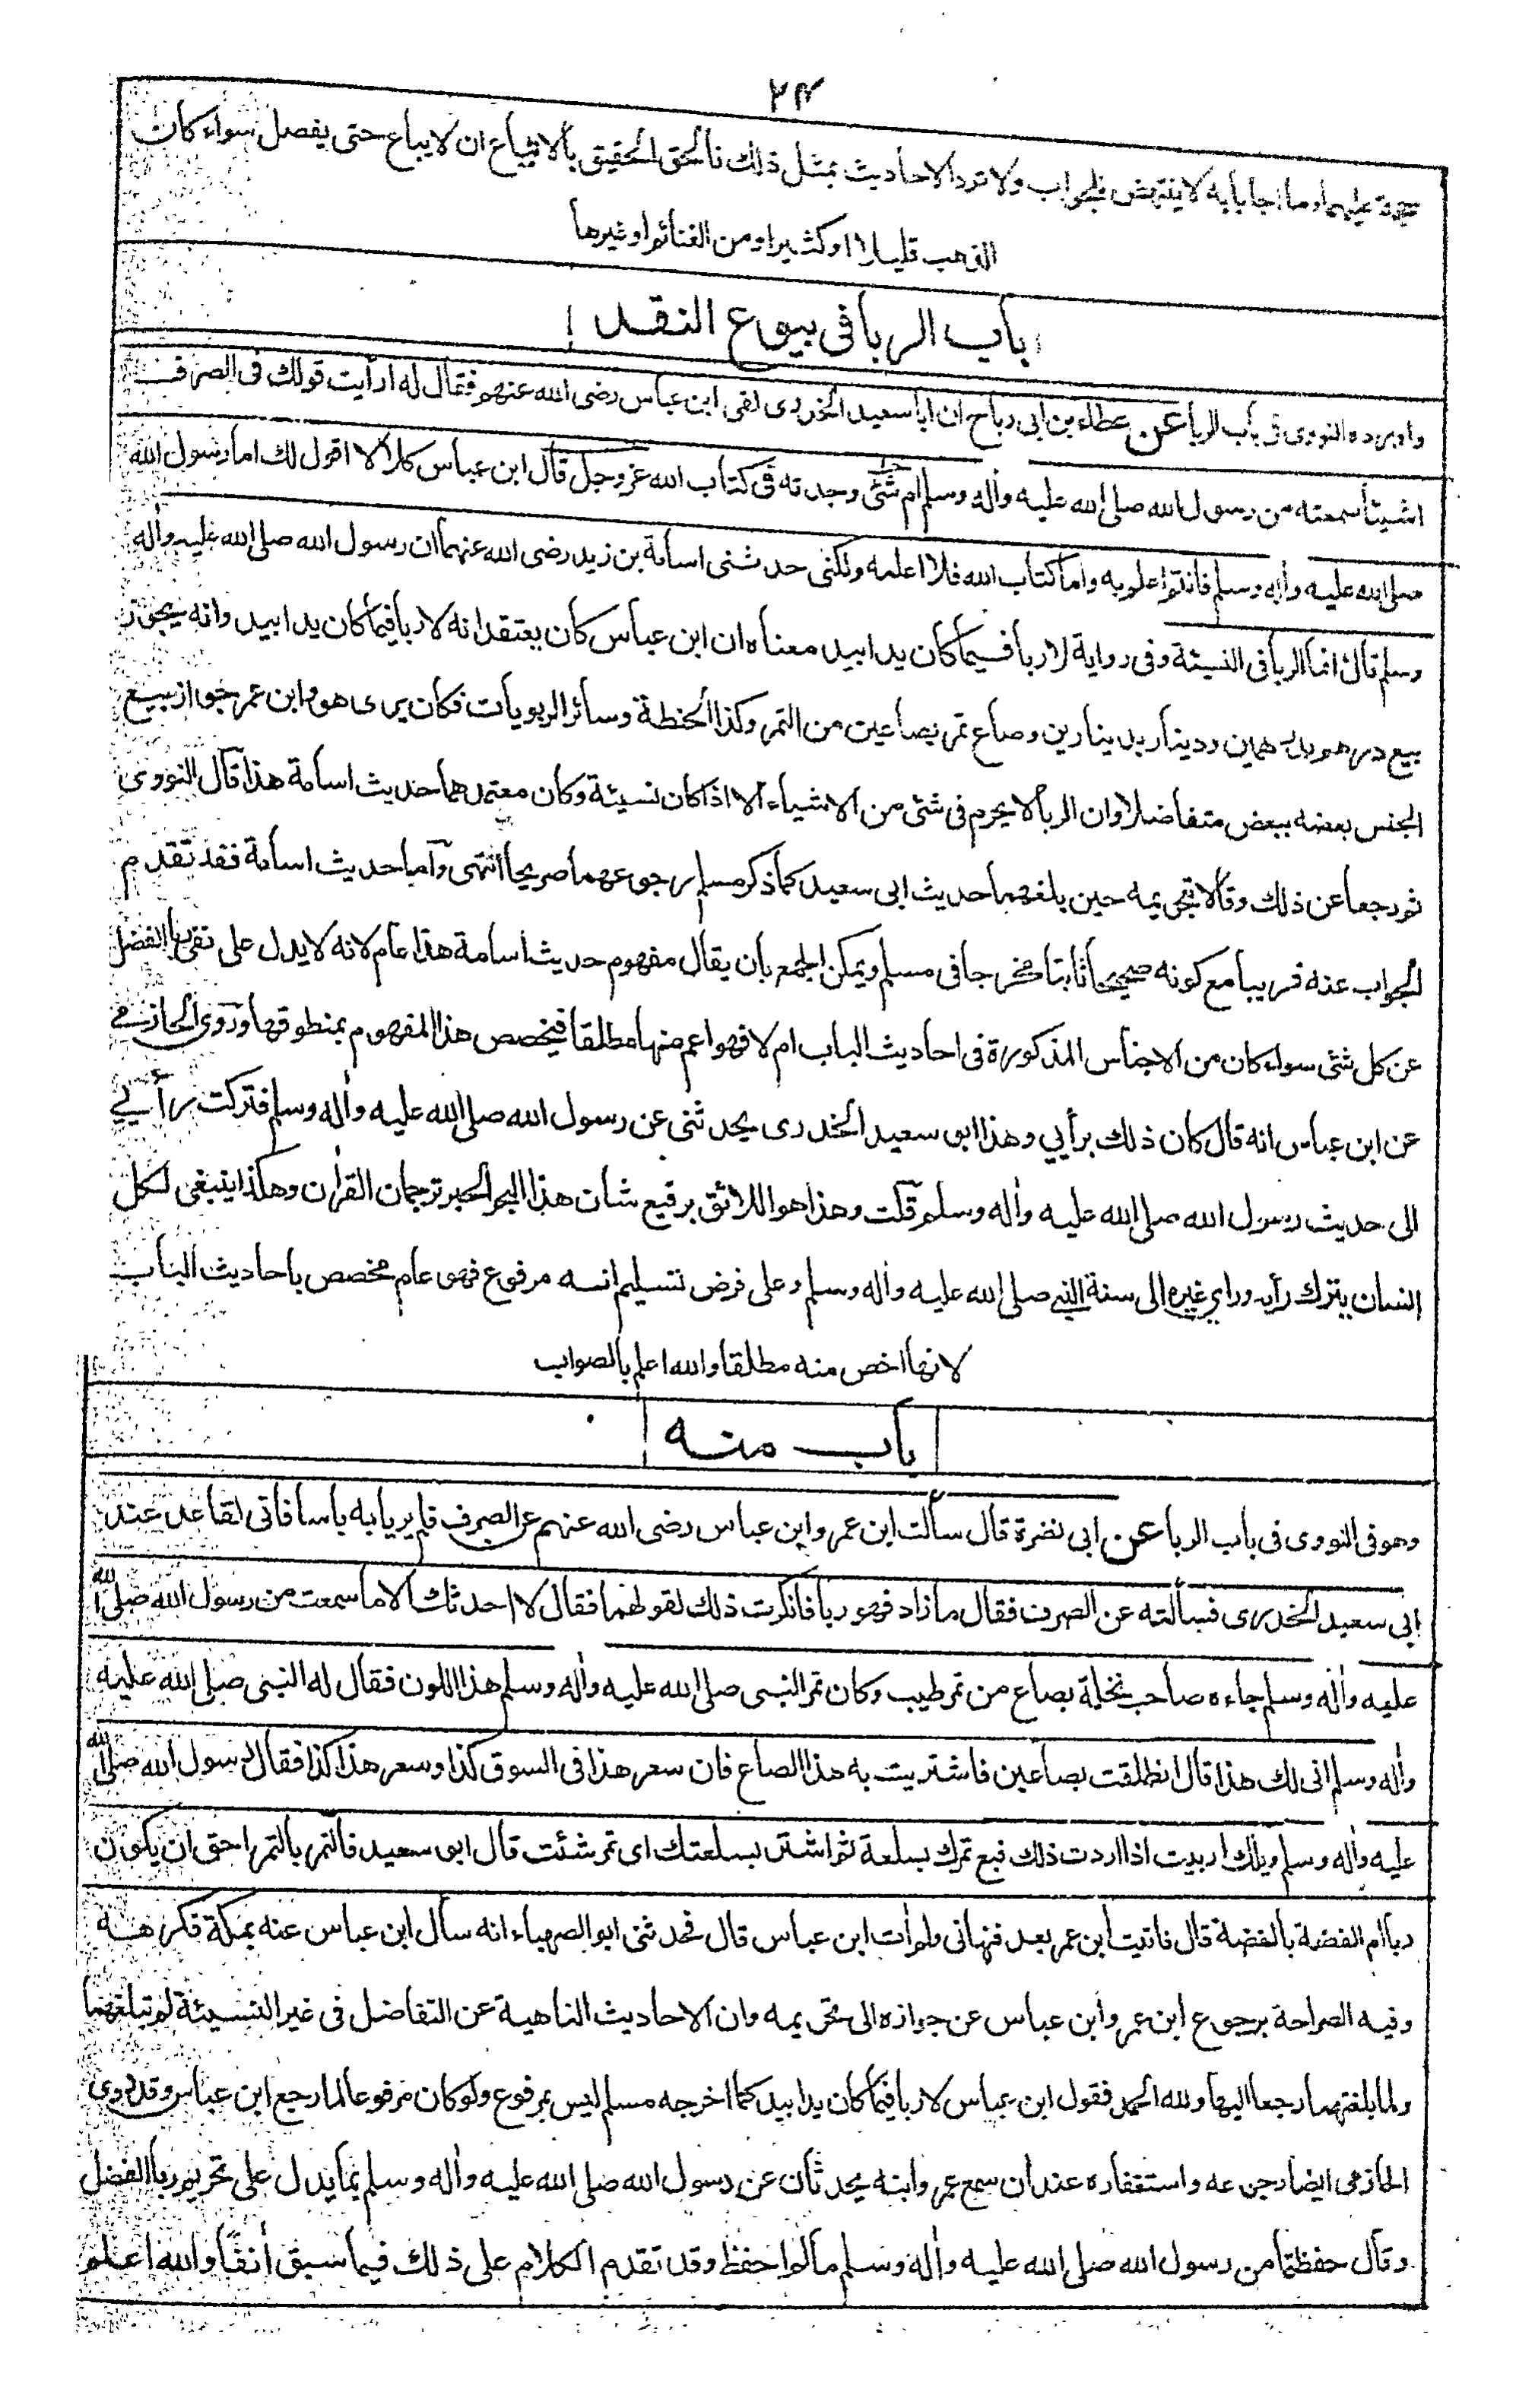 ٢٤
حجة عليهما وما اجابا به لا ينتهض للجواب ولا ترد الاحاديث بمثل ذلك فالحق الحقيق بالاتباع ان لا يباع حتى يفصل سواء كان
الذهب قليلا او كثيرا ومن الغنائم او غيرها
باب الربا في بيوع النقد
واورده النووى فى باب الربا عن عطاء بن ابى رباح ان ابا سعيد الخدرى لقى ابن عباس رضى الله عنهم فقال له ارأيت قولك فى الصرف
اشيئا سمعته من رسول الله صلى الله عليه واٰله وسلم ام شئ وجدته فى كتاب الله عز وجل قال ابن عباس كلا لا اقول لك اما رسول الله
صلى الله عليه واٰله وسلم فانتم اعلم به واما كتاب الله فلا اعلمه ولكنى حدثنى اسامة بن زيد رضى الله عنهما ان رسول الله صلى الله عليه واٰله
وسلم قال انما الربا فى النسيئة وفى رواية لا ربا فيما كان يدا بيد معناه ان ابن عباس كان يعتقد انه لا ربا فيما كان يدا بيد وانه يجوز
بيع درهم بدرهمين ودينار بدينارين وصاع تمر بصاعين من التمر وكذا الحنطة وسائر الربويات فكان يرى هو وابن عمر جواز بيع
الجنس بعضه ببعض متفاضلا وان الربا لا يحرم فى شئ من الاشياء الا اذا كان نسيئة وكان معتمدهما حديث اسامة هذا قال النووى
ثم رجعا عن ذلك وقالا بتحريمه حين بلغهما حديث ابى سعيد كما ذكر مسلم رجوعهما صريحا انتهى واما حديث اسامة فقد تقدم
الجواب عنه قريبا مع كونه صحيحا ثابتا مخرجا فى مسلم ويمكن الجمع بان يقال مفهوم حديث اسامة هذا عام لانه لا يدل على نفى ربا الفضل
عن كل شئ سواء كان من الاجناس المذكورة فى احاديث الباب ام لا فهو اعم منها مطلقا فيخصص هذا المفهوم بمنطوقها وروى الحازمى
عن ابن عباس انه قال كان ذلك برأيي وهذا ابو سعيد الخدرى يحدثنى عن رسول الله صلى الله عليه واٰله وسلم فتركت رأيي
الى حديث رسول الله صلى الله عليه واٰله وسلم قلت وهذا هو اللائق برفيع شان هذا البحر الحبر ترجمان القراٰن وهكذا ينبغى لكل
انسان يترك رأيه وراي غيره الى سنة النبي صلى الله عليه واٰله وسلم وعلى فرض تسليم انه مرفوع فهو عام مخصص باحاديث الباب
لانها اخص منه مطلقا والله اعلم بالصواب
باب منه
وهو فى النووى فى باب الربا عن ابى نضرة قال سألت ابن عمر وابن عباس رضى الله عنهم عن الصرف فلم يريا به بأسا فانى لقاعد عند
ابى سعيد الخدرى فسألته عن الصرف فقال ما زاد فهو ربا فانكرت ذلك لقولهما فقال لا احدثك الا ما سمعت من رسول الله صلى الله
عليه واٰله وسلم جاءه صاحب نخلة بصاع من تمر طيب وكان تمر النبى صلى الله عليه واٰله وسلم هذا اللون فقال له النبى صلى الله عليه
واٰله وسلم انى لك هذا قال انطلقت بصاعين فاشتريت به هذا الصاع فان سعر هذا فى السوق كذا وسعر هذا كذا فقال رسول الله صلى الله
عليه واٰله وسلم ويلك اربيت اذا اردت ذلك فبع تمرك بسلعة ثم اشتر بسلعتك اى تمر شئت قال ابو سعيد فالتمر بالتمر احق ان يكون
ربا ام الفضة بالفضة قال فاتيت ابن عمر بعد فنهانى ولم اٰت ابن عباس قال فحدثنى ابو الصهباء انه سأل ابن عباس عنه بمكة فكرهه
وفيه الصراحة برجوع ابن عمر وابن عباس عن جوازه الى تحريمه وان الاحاديث الناهية عن التفاضل فى غير النسيئة لم تبلغهما
ولما بلغتهما رجعا اليها ولله الحمد فقول ابن عباس لا ربا فيما كان يدا بيد كما اخرجه مسلم ليس بمرفوع ولو كان مرفوعا لما رجع ابن عباس وقد روى
الحازمى ايضا رجوعه واستغفاره عند ان سمع عمر وابنه يحدثان عن رسول الله صلى الله عليه واٰله وسلم بما يدل على تحريم ربا الفضل
وقال حفظتما من رسول الله صلى الله عليه واٰله وسلم ما لم احفظ وقد تقدم الكلام على ذلك فيما سبق اٰنفا والله اعلم